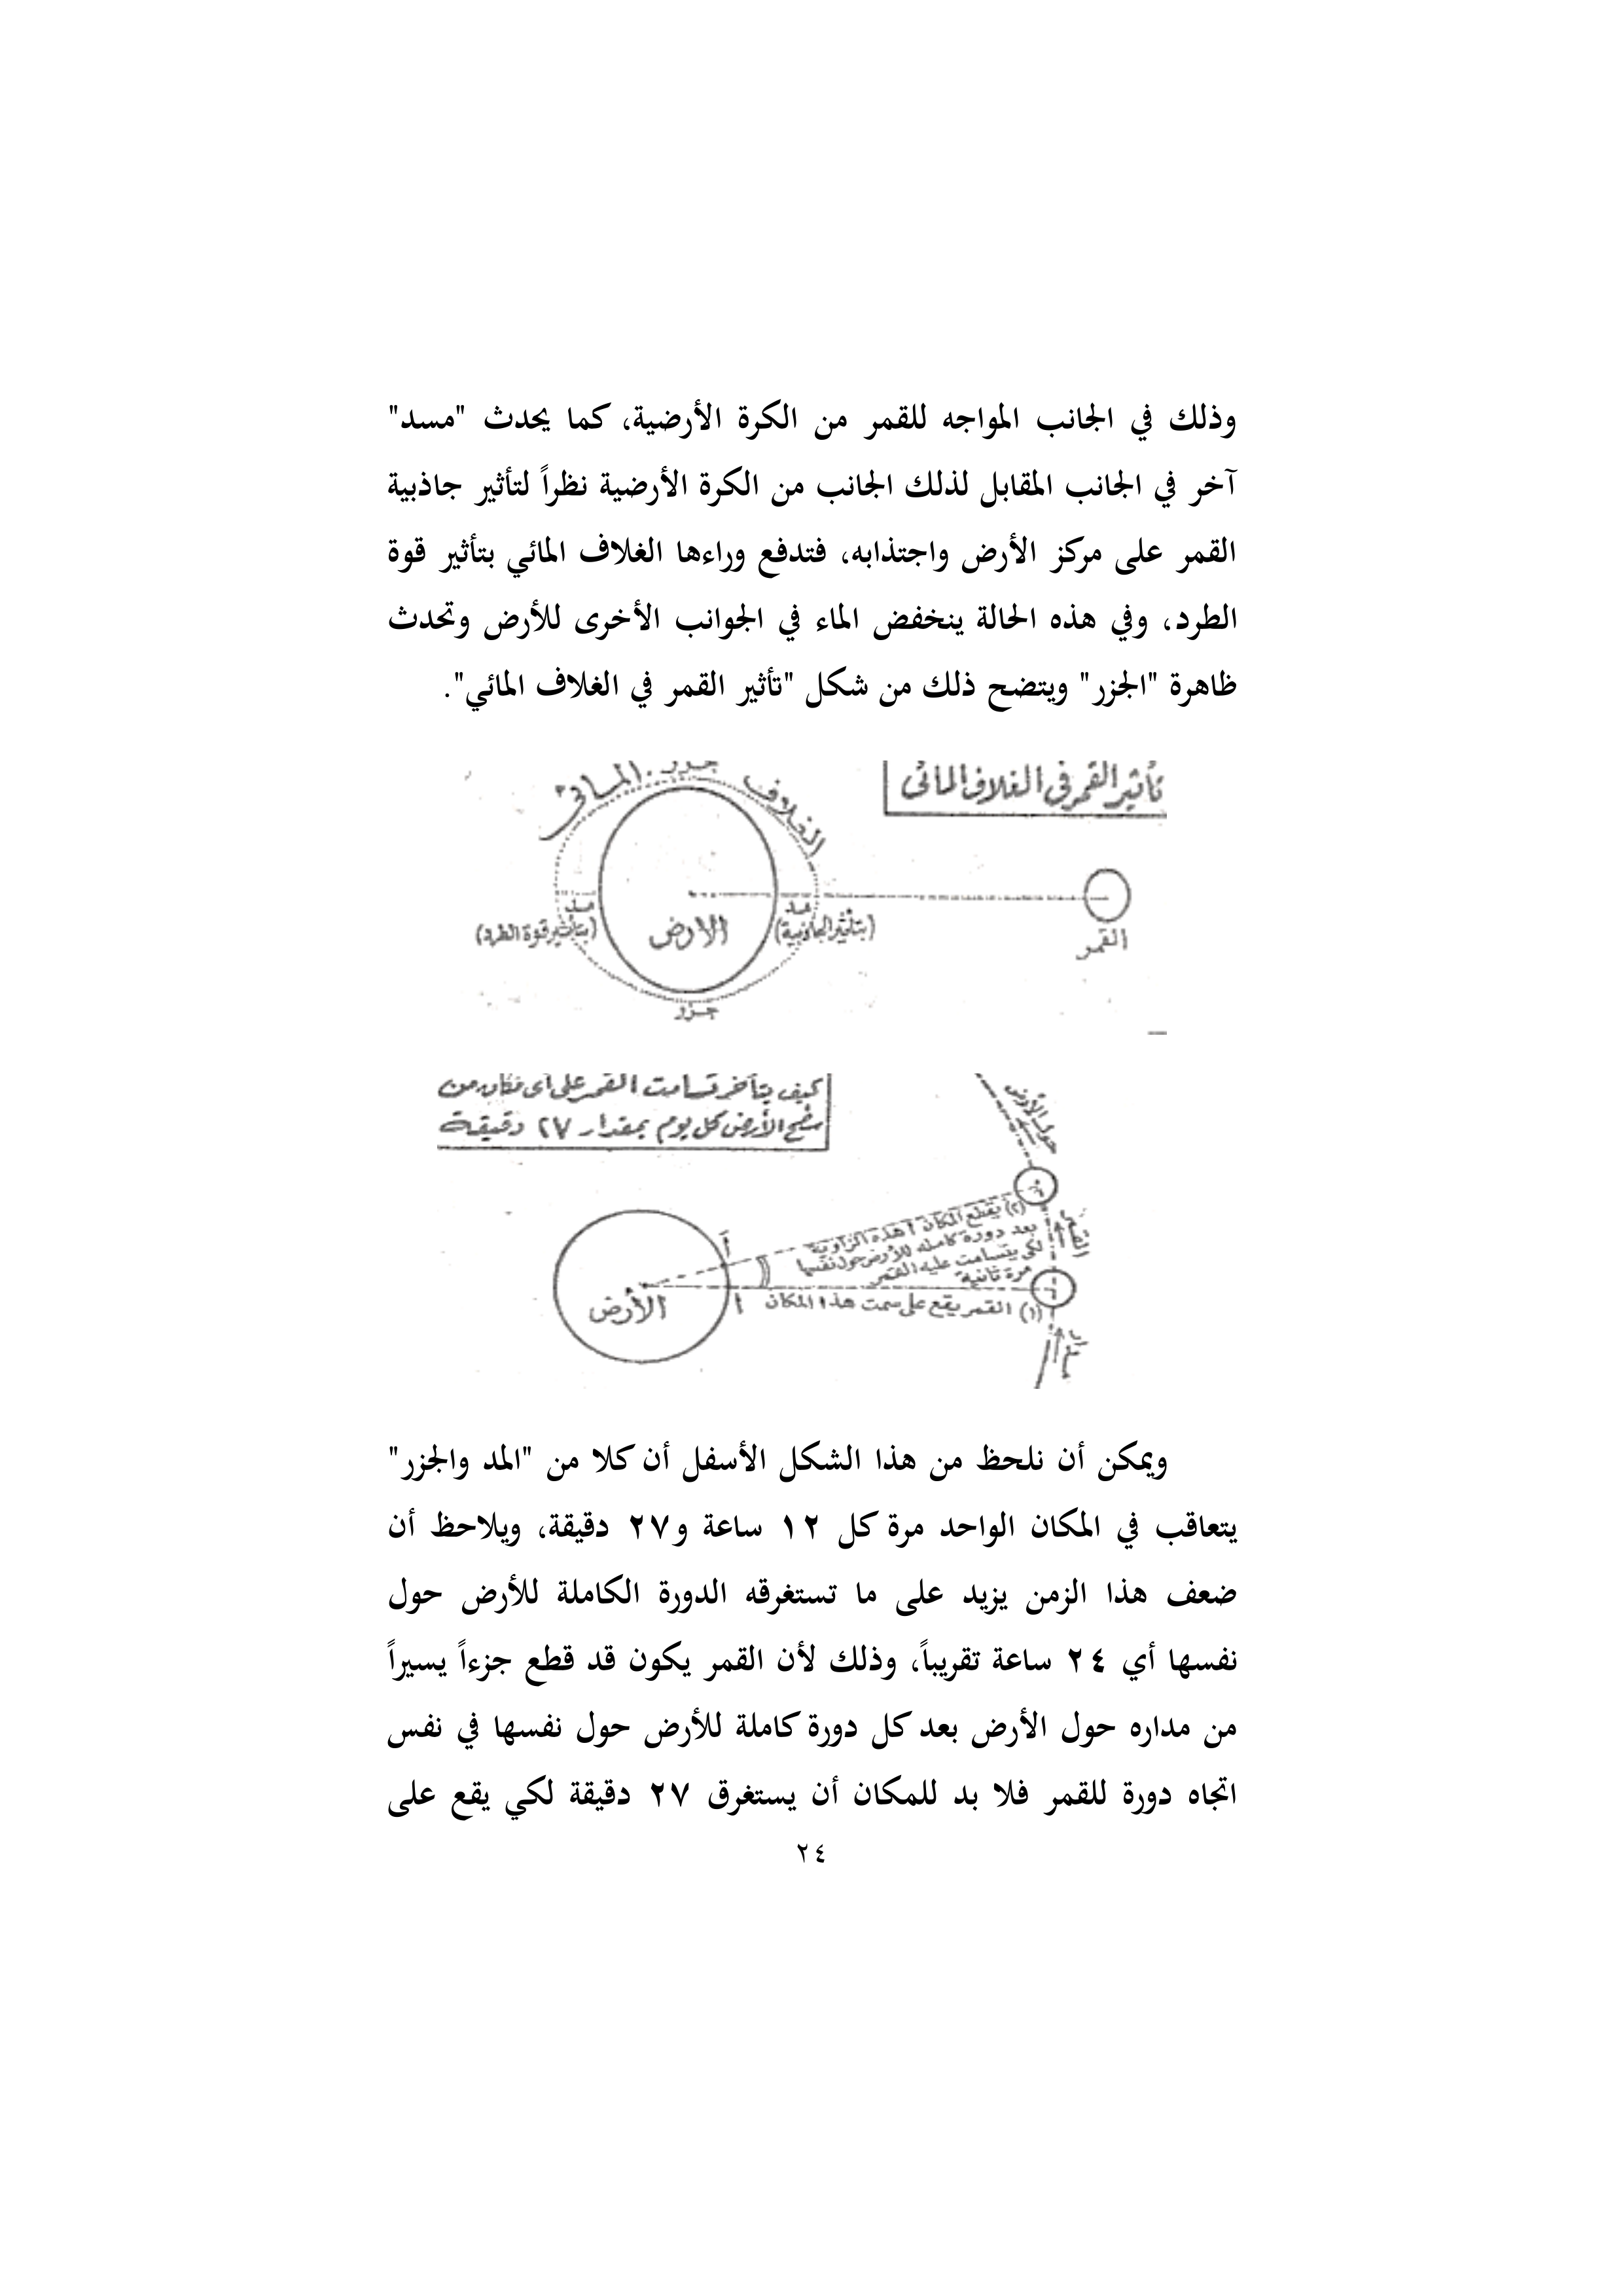 وذلك في الجانب المواجه للقمر من الكرة الأرضية، كما يحدث "مسد"
آخر في الجانب المقابل لذلك الجانب من الكرة الأرضية نظراً لتأثير جاذبية
القمر على مركز الأرض واجتذابه، فتدفع وراءها الغلاف المائي بتأثير قوة
الطرد، وفي هذه الحالة ينخفض الماء في الجوانب الأخرى للأرض وتحدث
ظاهرة "الجزر" ويتضح ذلك من شكل "تأثير القمر في الغلاف المائي".
تأثير القمر في الغلاف المائى
جزر
الغلاف المائى
مد
(بتأثير الجاذبية)
مد
(بتأثير قوة الطرد)
الارض
القمر
جزر
كيف يتأخر تسامت القمر على أى مكان من
سطح الأرض كل يوم بمقدار ٢٧ دقيقة
حول الأرض
القمر
(٢) يقطع المكان أ هذه الزاوية
بعد دورة كاملة للأرض حول نفسها
لكى يتسامت عليه القمر
مرة ثانية
أ
أ
(١) القمر يقع على سمت هذا المكان
الأرض
ويمكن أن نلحظ من هذا الشكل الأسفل أن كلا من "المد والجزر"
يتعاقب في المكان الواحد مرة كل ١٢ ساعة و٢٧ دقيقة، ويلاحظ أن
ضعف هذا الزمن يزيد على ما تستغرقه الدورة الكاملة للأرض حول
نفسها أي ٢٤ ساعة تقريباً، وذلك لأن القمر يكون قد قطع جزءاً يسيراً
من مداره حول الأرض بعد كل دورة كاملة للأرض حول نفسها في نفس
اتجاه دورة للقمر فلا بد للمكان أن يستغرق ٢٧ دقيقة لكي يقع على
٢٤